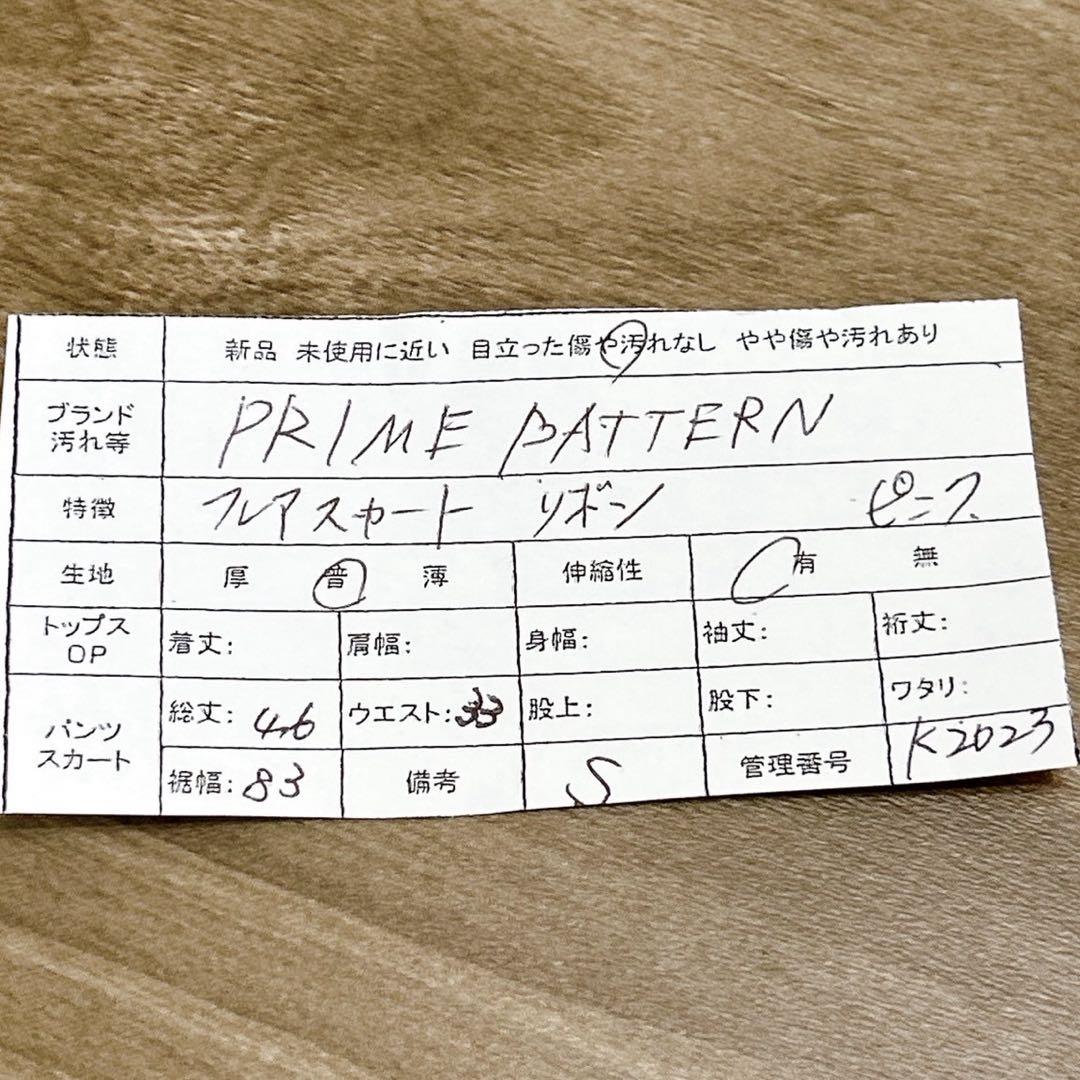 状態 新品 未使用に近い 目立った傷や汚れなし やや傷や汚れあり
ブランド
汚れ等 PRIME PATTERN
特徴 フレアスカート リボン ピンク
生地 厚 普 薄 伸縮性 有 無
トップス
OP 着丈: 肩幅: 身幅: 袖丈: 裄丈:
パンツ
スカート 総丈: 46 ウエスト: 33 股上: 股下: ワタリ:
裾幅: 83 備考 S 管理番号 K2023